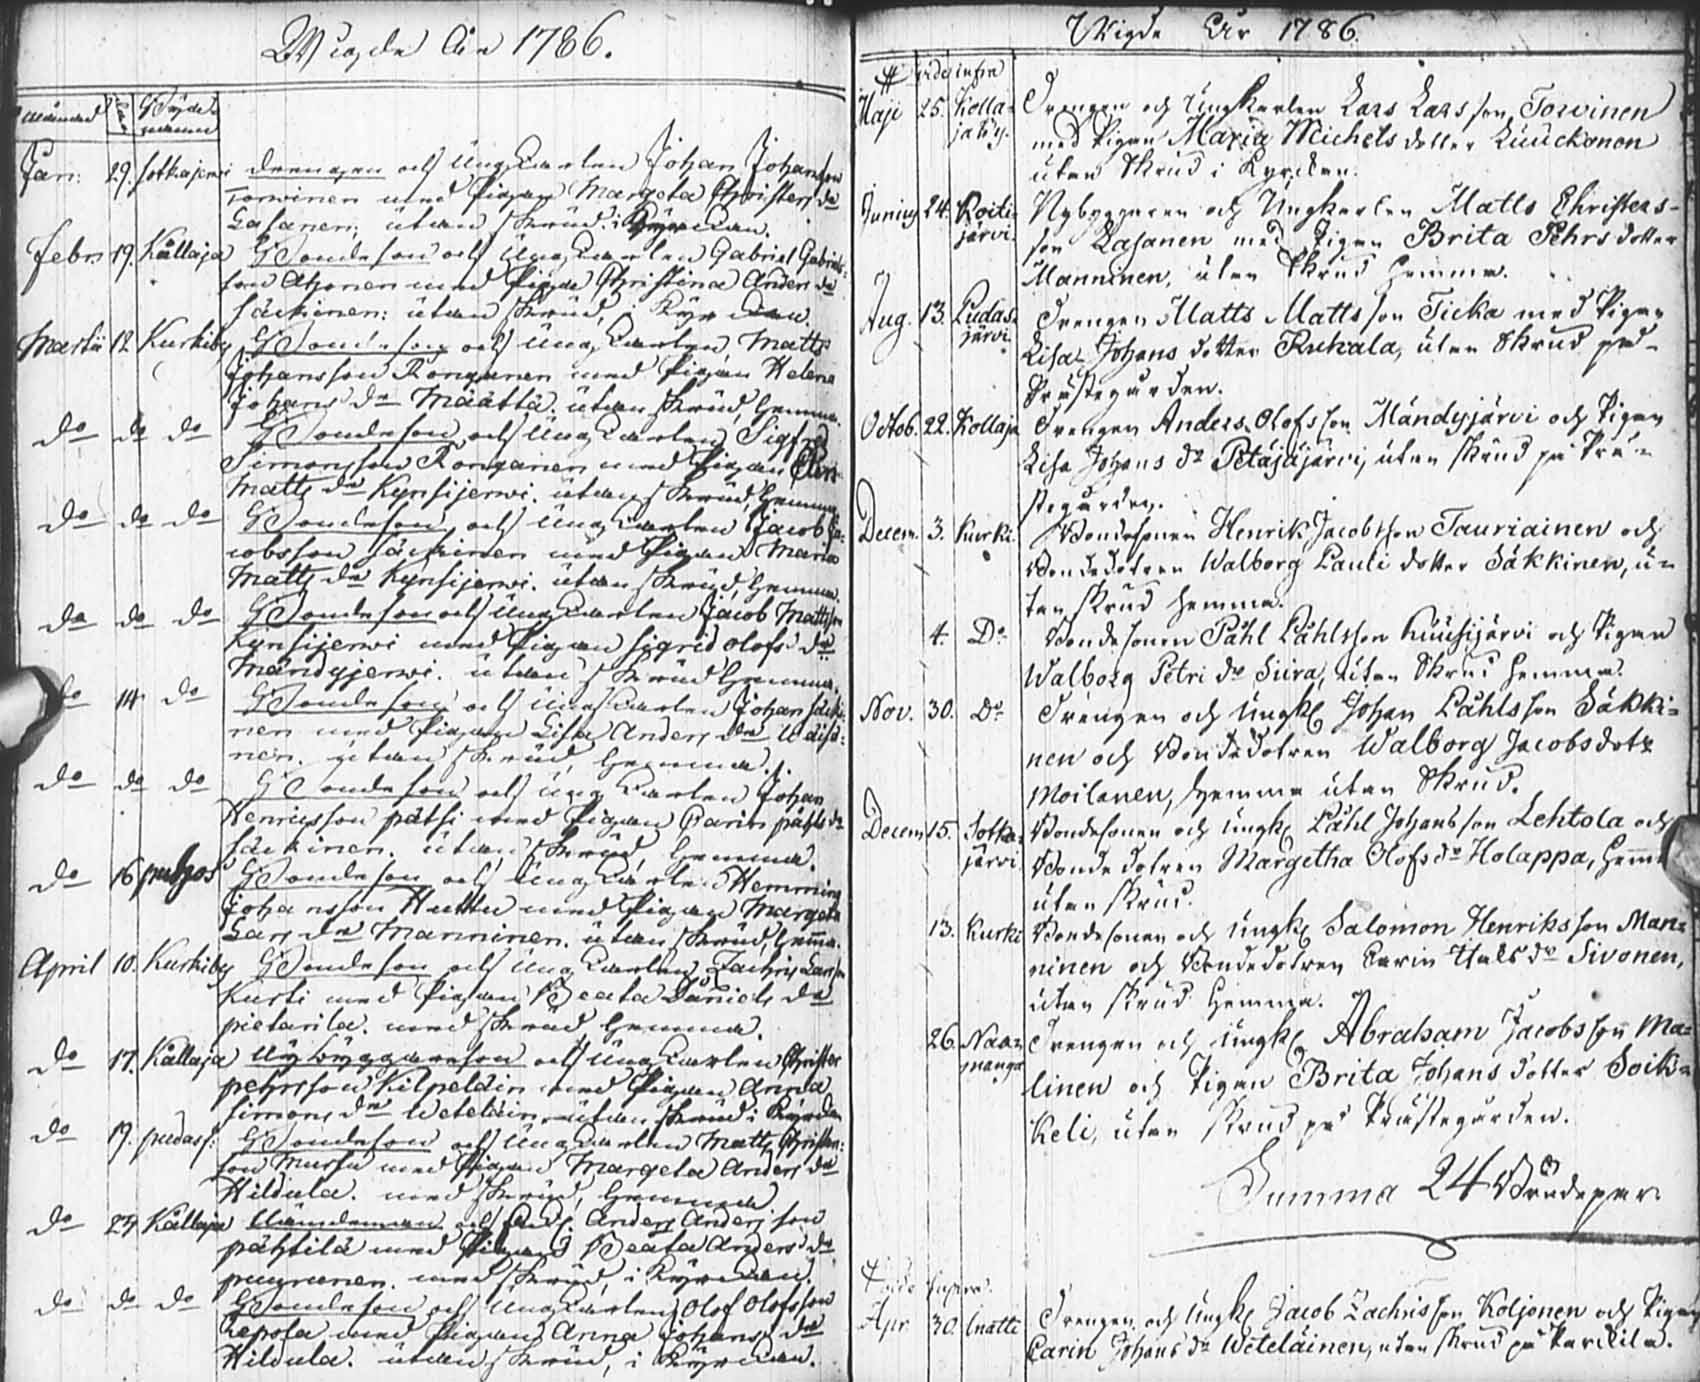 Wigde År 1786.
Månad Dag Bÿdes namn
Jan: 29. Sotkajerwi drengen och Ungkarlen Johan Johansson
Torwinen med Pigan Margeta Christers dr
Lasanen, utan skrud i Kÿrckan.
Febr 19. Kållaja Bondeson och Ungkarlen Gabriel Gabriels-
son Ahonen med Pigan Christina Anders dr
Säckinen: utan skrud, i Kÿrckan.
Martii 12 Kurkiby Bondeson och Ungkarlen Matts
Johansson Ronganen med Pigan Helena
Johans dr Määttä. utan skrud, hemma.
do do do Bondeson och Ungkarlen Sigfred
Simonsson Ronganen med Pigan
Matts dr Kynsijerwi. utan skrud, hemma.
do do do Bondeson och Ungkarlen Jacob Ja-
cobsson Säckinen med Pigan Maria
Matts dr Kynsijerwi. utan skrud, hemma.
do do do Bondeson och Ungkarlen Jacob Mattsson
Kynsijerwi med Pigan Sigrid Olofs dr
Mändyjerwi. utan skrud hemma.
do 14 do Bondeson och Ungkarlen Johan Säcki-
nen med Pigan Lisa Anders dr Wäisä-
nen. utan skrud, hemma.
do do do Bondeson och Ungkarlen Johan
Henricsson pätsi med Pigan Carin påhls dr
Säckinen. utan skrud, hemma.
do 16 puhos Bondeson och Ungkarlen Hemming
Johansson Huttu med Pigan Margeta
Lars dr Manninen. utan skrud, hema.
April 10. Kurkiby Bondeson och Ungkarlen Zachris Larsson
Kurki med Pigan Beata Daniels dr
pietarila. med skrud hemma.
do 17. Kållaja Nÿbÿggareson och Ungkarlen Christer
pehrsson Kilpeläin med Pigan Anna
Simons dr Weteläin utan skrud i Kÿrckan
do 19. pudasj: Bondeson och Ungkarlen Matts Christers-
son Mursu med Pigan Margeta Anders dr
Hildula. med skrud, hemma
do 24 Kållaja Nämdeman och Andersson
pähtilä med Pigan Beata Anders dr
puurunen. med skrud, i Kÿrckan.
do do do Bondeson och Ungkarlen Olof Olofsson
Leposa med Pigan Anna Johans dr
Hildula. utan skrud, i Kÿrckan.
Wigde År 1786.
vide infra
Maji 25. Kolla- Drengen och Ungkarlen Lars Larsson Torvinen
jaby. med Pigan Maria Michels dotter Luuckonen
utan skrud i Kyrckan.
Junius 24. Koiti- Nybyggaren och Ungkarlen Matts Christers-
järvi. son Lasanen med Pigan Brita Pehrs dotter
Manninen, utan skrud hemma.
Aug. 13. Pudas- Drengen Matts Mattsson Ticka med Pigan
järvi Lisa Johans dotter Kukala, utan skrud på
Prästegården.
Octob. 22. Kollaja Drengen Anders Olofsson Mändyjärvi och Pigan
Lisa Johans dr Petäjäjärvi, utan skrud på Prä-
stegården.
Decem. 3. Kurki Bondesonen Henrik Jacobsson Tauriainen och
Bondedotren Walborg Pauli dotter Säkkinen, u-
tan skrud hemma.
4. Do Bondesonen Påhl Påhlsson Kuusijärvi och Pigan
Walborg Petri dr Siira, utan skrud hemma.
Nov. 30. Do Drengen och Ungk Johan Påhlsson Säkki-
nen och Bondedotren Walborg Jacobs dotr
Moilanen, hemma utan skrud.
Decem 15. Sotka- Bondesonen och Ungk Påhl Johansson Lehtola och
järvi Bondedotren Margetha Olofs dr Holappa, hema
utan skrud.
13. Kurki Bondesonen och Ungk Salomon Henriksson Man-
ninen och Bondedotren Carin Nils dr Sivonen,
utan skrud hemma.
26. Naa- Drengen och Ungk Abraham Jacobsson Ma-
manga linen och Pigan Brita Johans dotter Soik-
keli, utan skrud på Prästegården.
Summa 24 Brudepar
vide supra.
Apr 30. Inatti Drengen och Ungk Jacob Zachrisson Koljonen och Pigan
Carin Johans dr Weteläinen, utan skrud på Parckila.